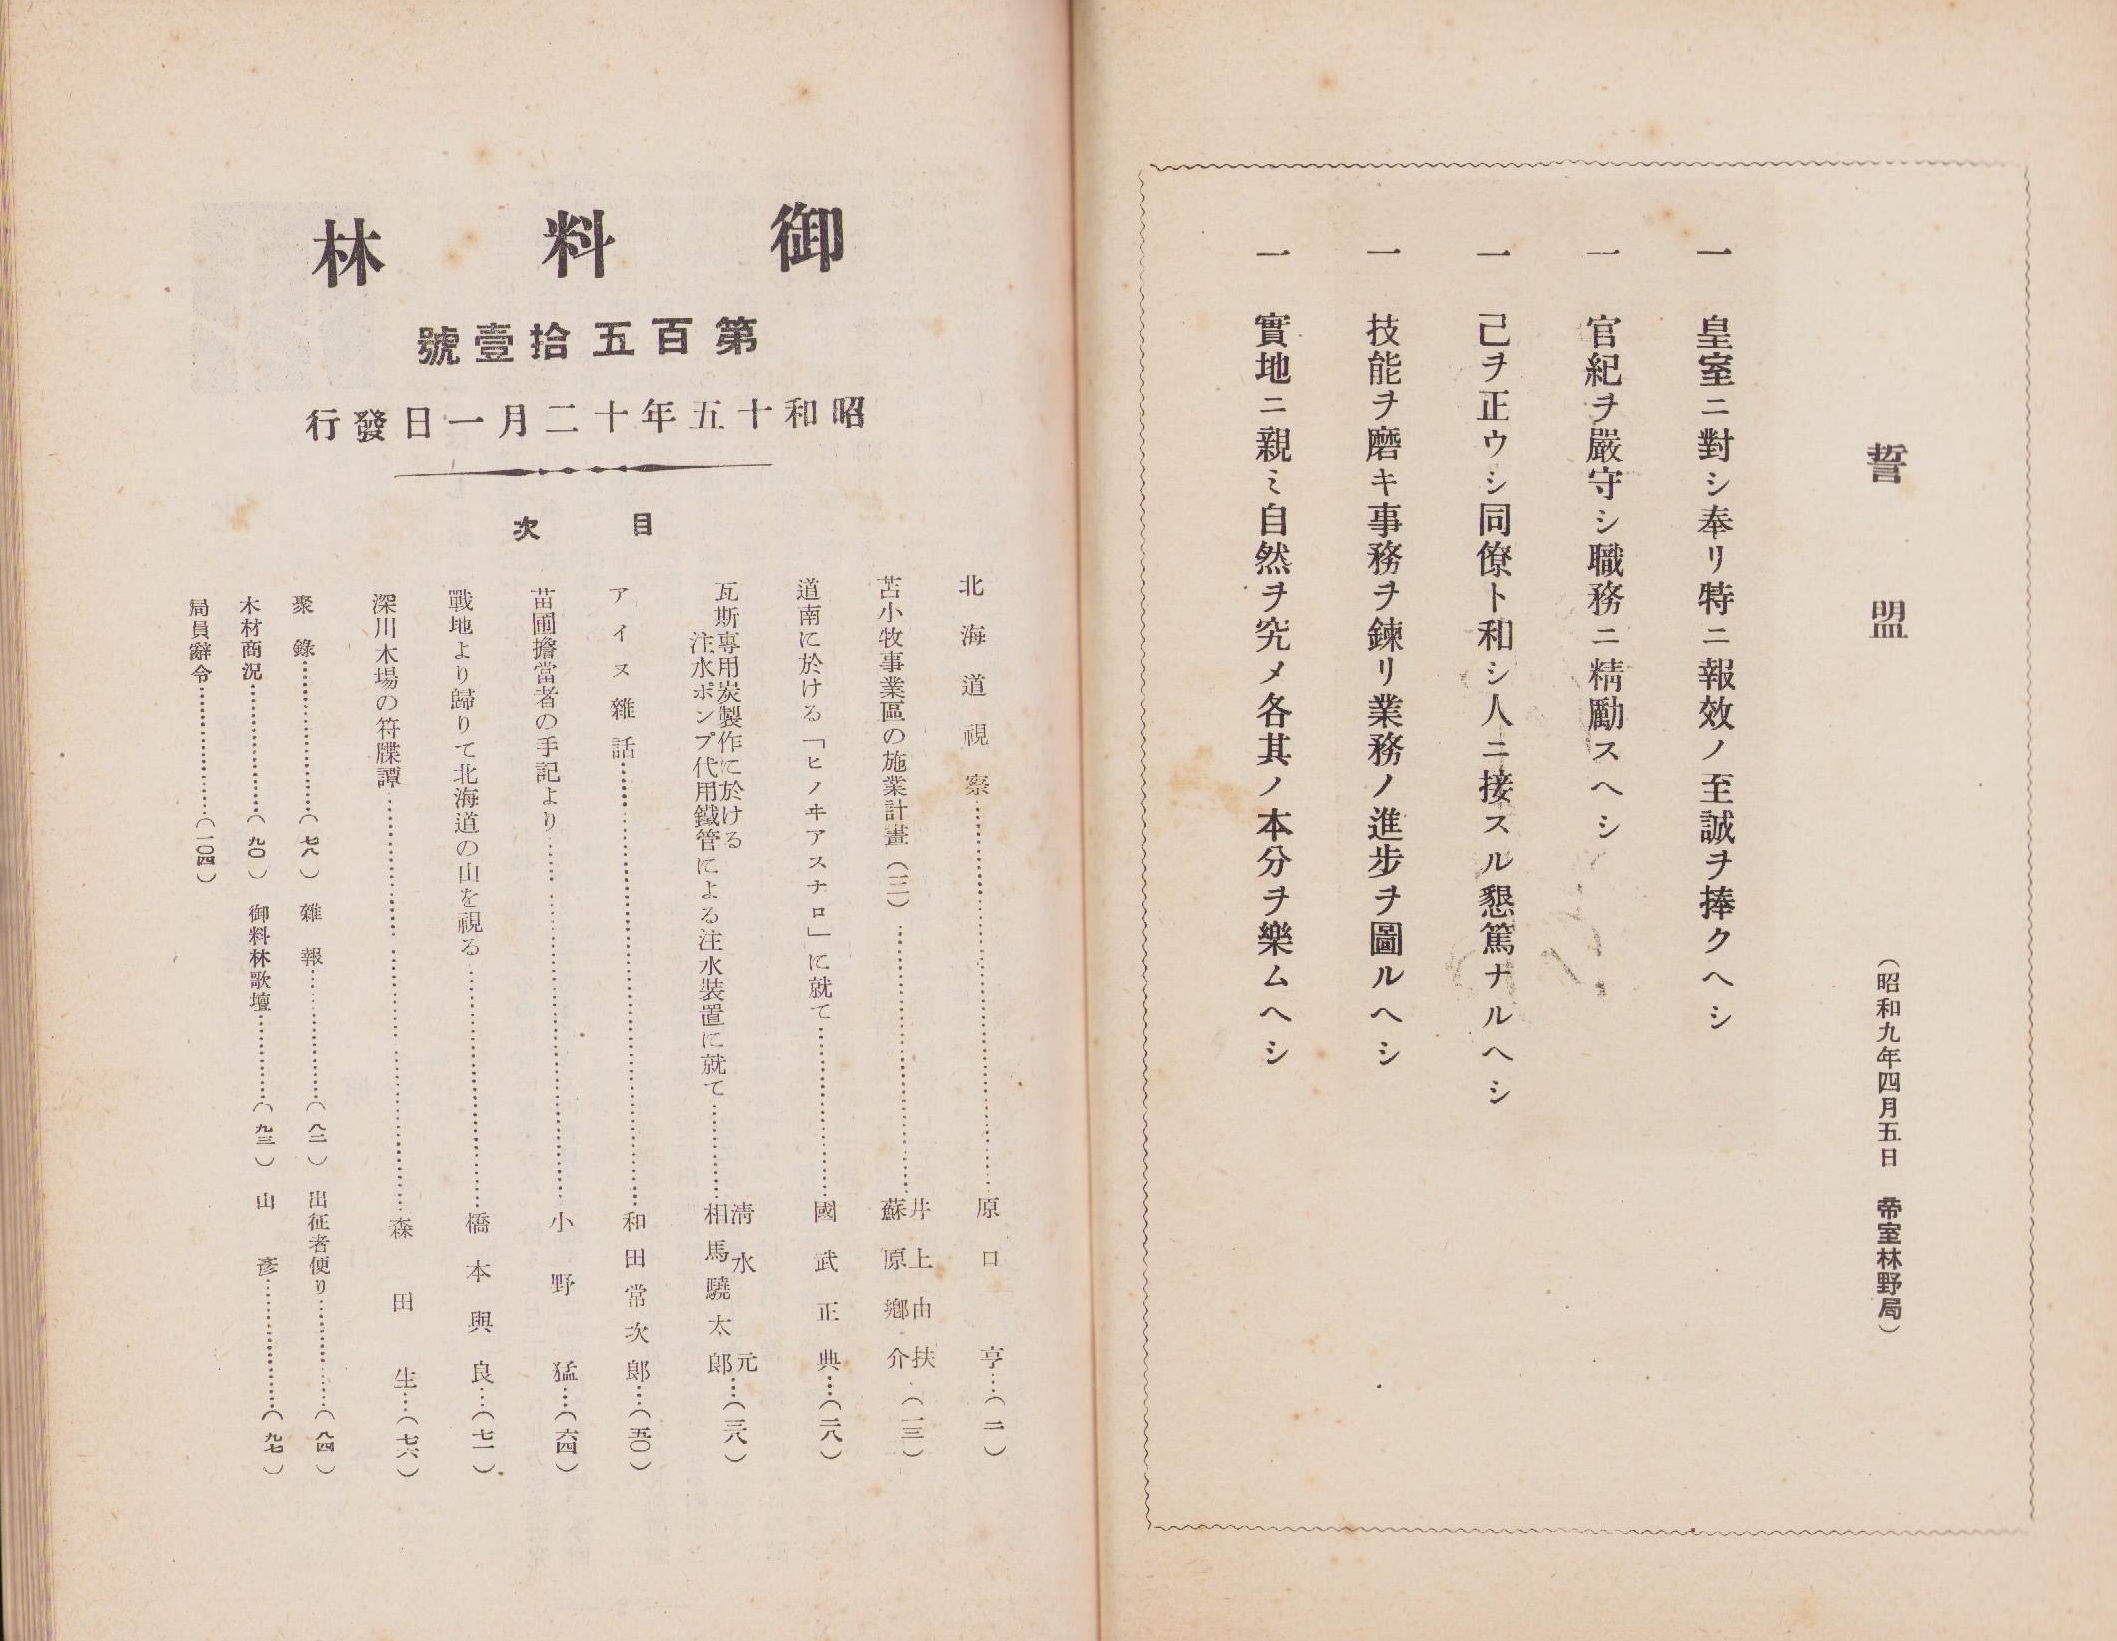 誓盟
（昭和九年四月五日　帝室林野局）
一　皇室ニ對シ奉リ特ニ報效ノ至誠ヲ捧クヘシ
一　官紀ヲ嚴守シ職務ニ精勵スヘシ
一　己ヲ正ウシ同僚ト和シ人ニ接スル懇篤ナルヘシ
一　技能ヲ磨キ事務ヲ鍊リ業務ノ進步ヲ圖ルヘシ
一　實地ニ親ミ自然ヲ究メ各其ノ本分ヲ樂ムヘシ
御料林
第百五拾壹號
昭和十五年十二月一日發行
目次
北海道視察…………原口亨…（二）
苫小牧事業區の施業計畫（二）…………井上由扶　蘇原鄕介…（一三）
道南に於ける「ヒノキアスナロ」に就て…………國武正典…（二八）
瓦斯專用炭製作に於ける
注水ポンプ代用鐵管による注水裝置に就て…………清水元　相馬驍太郞…（三八）
アイヌ雜話…………和田常次郞…（五〇）
苗圃擔當者の手記より…………小野猛…（六四）
戰地より歸りて北海道の山を視る…………橋本與良…（七一）
深川木場の符牒譚…………森田生…（七六）
聚錄…………（七八）　雜報…………（八二）　出征者便り…………（八四）
木材商況…………（九〇）　御料林歌壇…………（九三）　山彥…………（九七）
局員辭令…………（一〇四）